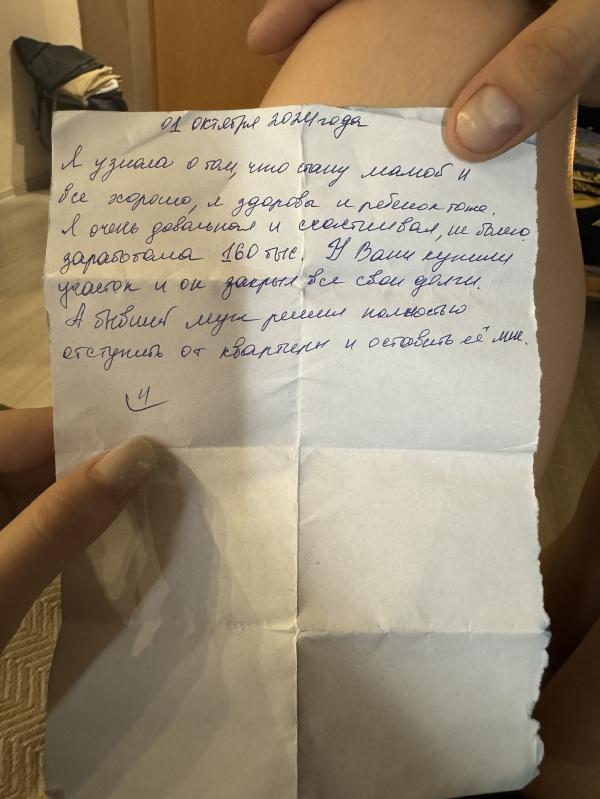 01 октября 2024 года
Я узнала о том, что стану мамой и
все хорошо, я здорова и ребенок тоже.
Я очень довольная и счастливая, не было.
заработала 160 тыс. У Вани купили
участок и он закрыл все свои долги.
А бывший муж решил полностью
отступить от квартиры и оставить её мне.